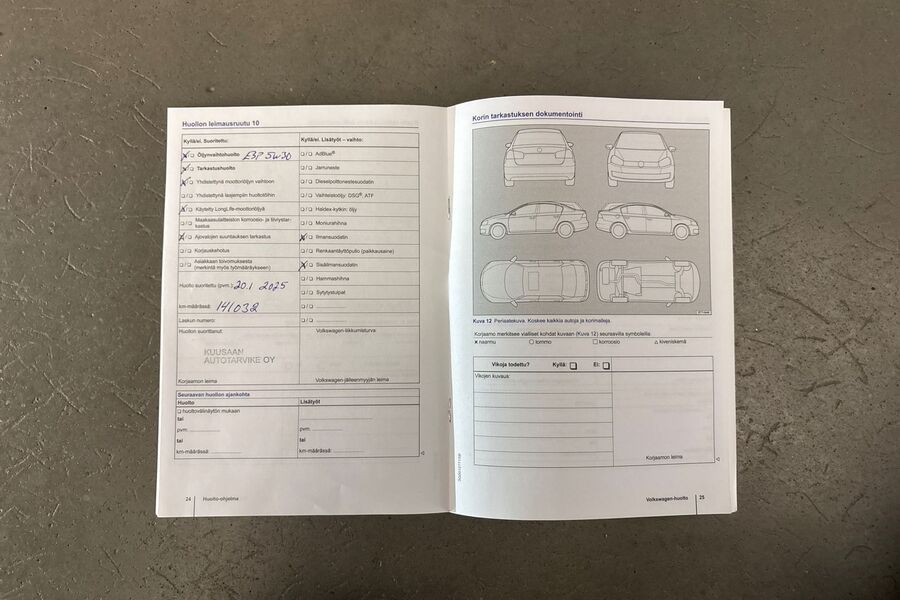 Huollon leimausruutu 10
Kyllä/ei. Suoritettu:
Öljynvaihtohuolto E3P 5W30
Tarkastushuolto
Yhdistettynä moottoriöljyn vaihtoon
Yhdistettynä laajempiin huoltotöihin
Käytetty LongLife-moottoriöljyä
Maakaasulaitteiston korroosio- ja tiiviystar-
kastus
Ajovalojen suuntauksen tarkastus
Korjauskehotus
Asiakkaan toivomuksesta
(merkintä myös työmääräykseen)
Huolto suoritettu (pvm.): 20.1 2025
km-määrässä: 141032
Laskun numero:
Huollon suorittanut:
KUUSAAN
AUTOTARVIKE OY
Korjaamon leima
Kyllä/ei. Lisätyöt – vaihto:
AdBlue®
Jarruneste
Dieselpolttonestesuodatin
Vaihteistoöljy: DSG®, ATF
Haldex-kytkin: öljy
Moniurahihna
Ilmansuodatin
Renkaantäyttöpullo (paikkausaine)
Sisäilmansuodatin
Hammashihna
Sytytystulpat
Volkswagen-liikkumisturva
Volkswagen-jälleenmyyjän leima
Seuraavan huollon ajankohta
Huolto
huoltovälinäytön mukaan
tai
pvm.
tai
km-määrässä:
Lisätyöt
pvm.
tai
km-määrässä:
24 Huolto-ohjelma
Korin tarkastuksen dokumentointi
Kuva 12 Periaatekuva. Koskee kaikkia autoja ja korimalleja.
Korjaamo merkitsee vialliset kohdat kuvaan (Kuva 12) seuraavilla symboleilla:
× naarmu ○ lommo □ korroosio △ kiveniskemä
Vikoja todettu? Kyllä: Ei:
Vikojen kuvaus:
Korjaamon leima
Volkswagen-huolto 25